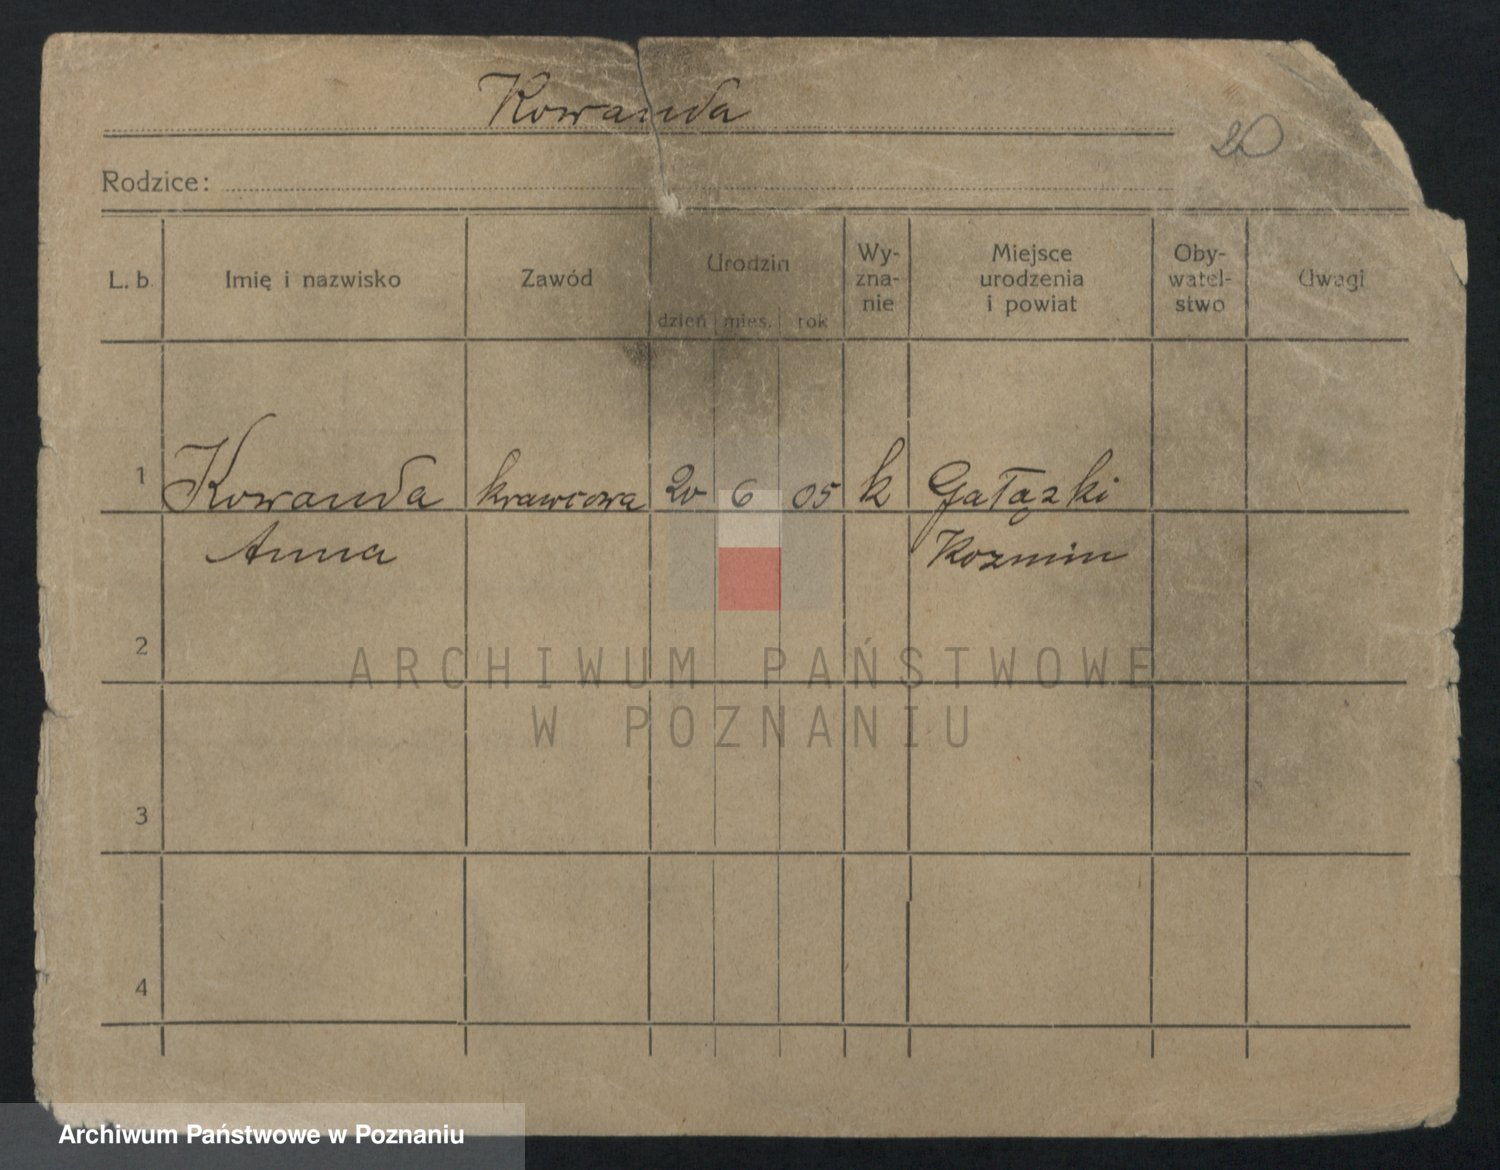 Kowanda
20
Rodzice:
L. b. Imię i nazwisko Zawód Urodzin dzień mies. rok Wy-zna-nie Miejsce urodzenia i powiat Oby-watel-stwo Uwagi
1 Kowanda krawcowa 20 6 05 k Gałązki
Anna Kozmin
2
ARCHIWUM PAŃSTWOWE
W POZNANIU
3
4
Archiwum Państwowe w Poznaniu